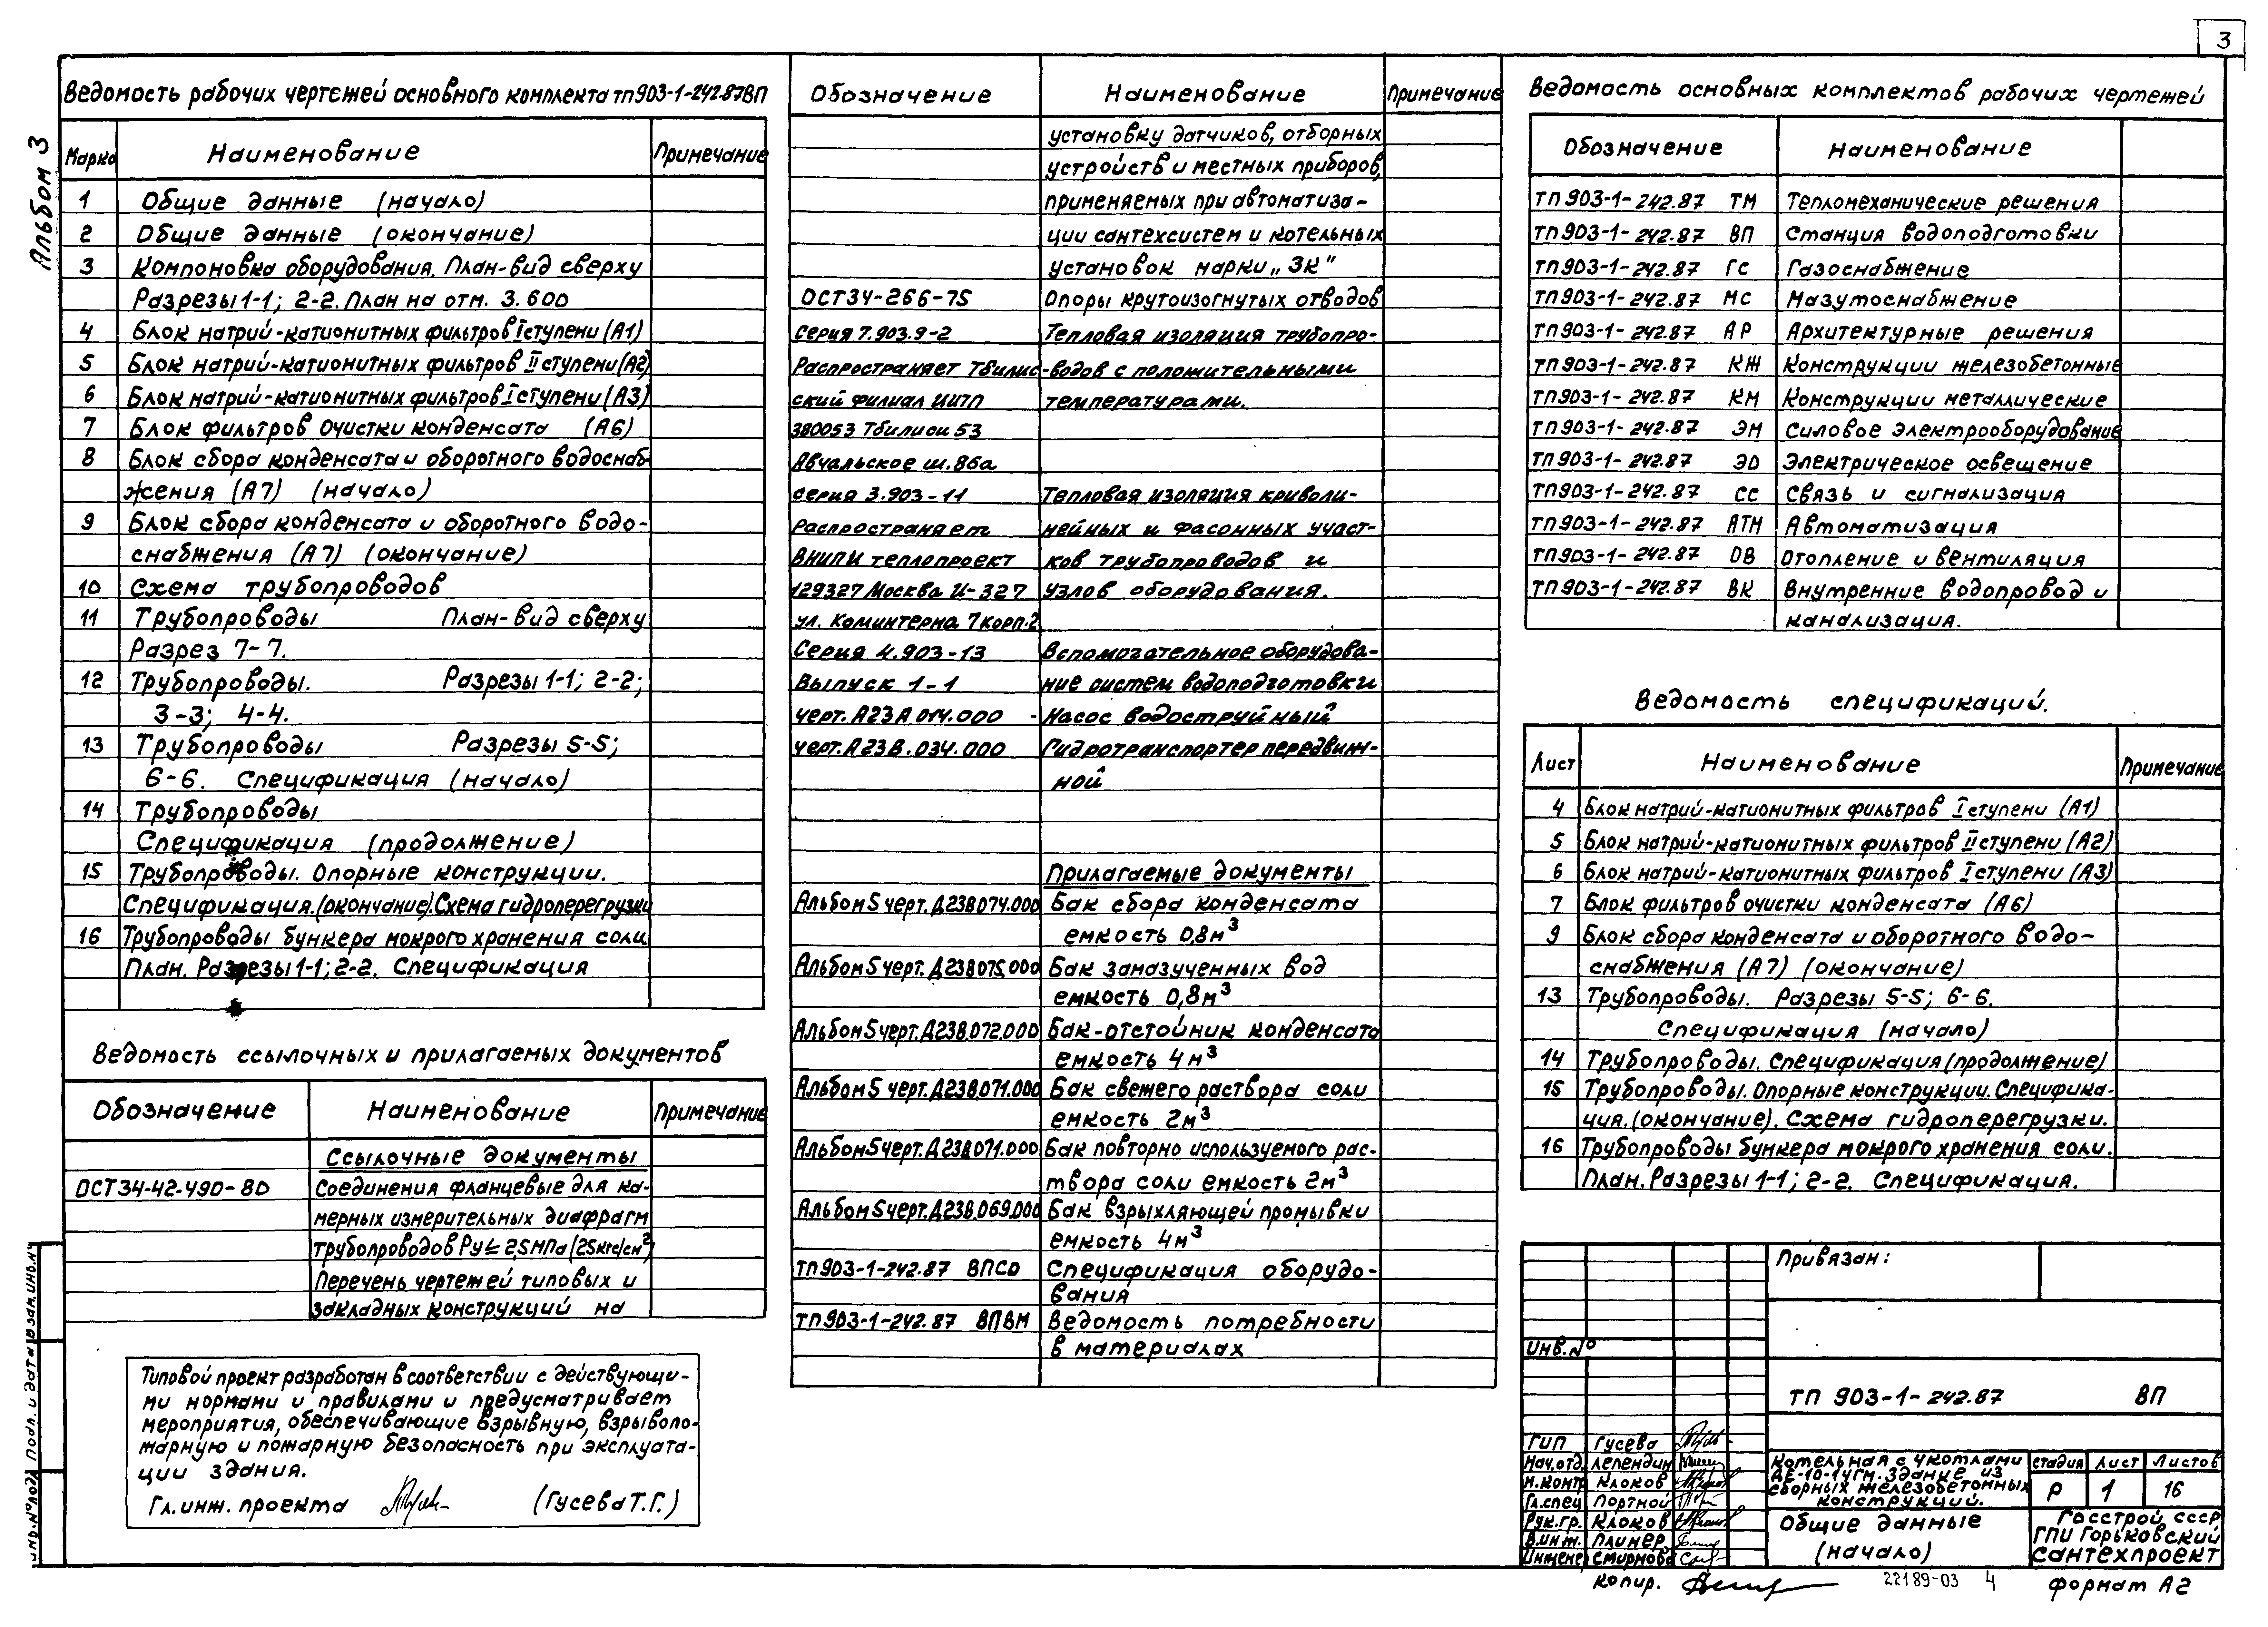 3
Альбом 3
Ведомость рабочих чертежей основного комплекта тп903-1-242.87ВП
Марка Наименование Примечание
1 Общие данные (начало)
2 Общие данные (окончание)
3 Компоновка оборудования. План-вид сверху
Разрезы 1-1; 2-2. План на отм. 3.600
4 Блок натрий-катионитных фильтров I ступени (А1)
5 Блок натрий-катионитных фильтров II ступени (А2)
6 Блок натрий-катионитных фильтров I ступени (А3)
7 Блок фильтров очистки конденсата (А6)
8 Блок сбора конденсата и оборотного водоснаб-
жения (А7) (начало)
9 Блок сбора конденсата и оборотного водо-
снабжения (А7) (окончание)
10 Схема трубопроводов
11 Трубопроводы План-вид сверху
Разрез 7-7.
12 Трубопроводы. Разрезы 1-1; 2-2;
3-3; 4-4.
13 Трубопроводы Разрезы 5-5;
6-6. Спецификация (начало)
14 Трубопроводы
Спецификация (продолжение)
15 Трубопроводы. Опорные конструкции.
Спецификация.(окончание).Схема гидроперегрузки
16 Трубопроводы бункера мокрого хранения соли
План. Разрезы 1-1; 2-2. Спецификация
Ведомость ссылочных и прилагаемых документов
Обозначение Наименование Примечание
Ссылочные документы
ОСТ34-42-490-80 Соединения фланцевые для ка-
мерных измерительных диафрагм
трубопроводов Ру≤2,5МПа(25кгс/см²)
Перечень чертежей типовых и
закладных конструкций на
Типовой проект разработан в соответствии с действующи-
ми нормами и правилами и предусматривает
мероприятия, обеспечивающие взрывную, взрывопо-
жарную и пожарную безопасность при эксплуата-
ции здания.
Гл.инж. проекта (Гусева Т.Г.)
Обозначение Наименование Примечание
установку датчиков, отборных
устройств и местных приборов,
применяемых при автоматиза-
ции сантехсистем и котельных
установок марки „ЗК"
ОСТ34-266-75 Опоры крутоизогнутых отводов
Серия 7.903.9-2 Тепловая изоляция трубопро-
Распространяет Тбилис- водов с положительными
ский филиал ЦИТП температурами.
380053 Тбилиси 53
Авчальское ш.86а
Серия 3.903-11 Тепловая изоляция криволи-
Распространяет нейных и фасонных участ-
ВНИПИ теплопроект ков трубопроводов и
129327 Москва И-327 узлов оборудования.
ул. Коминтерна 7 корп.2
Серия 4.903-13 Вспомогательное оборудова-
Выпуск 1-1 ние систем водоподготовки
черт. А23А 014.000 - Насос водоструйный
черт. А23В.034.000 Гидротранспортер передвиж-
ной
Прилагаемые документы
Альбом5 черт.Д23В074.000 Бак сбора конденсата
емкость 0,8м³
Альбом5 черт.Д23В075.000 Бак замазученных вод
емкость 0,8м³
Альбом5 черт.Д23В.072.000 Бак-отстойник конденсата
емкость 4м³
Альбом5 черт.Д23В.071.000 Бак свежего раствора соли
емкость 2м³
Альбом5черт.Д23В.071.000 Бак повторно используемого рас-
твора соли емкость 2м³
Альбом5черт.Д23В.069.000 Бак взрыхляющей промывки
емкость 4м³
ТП903-1-242.87 ВПСО Спецификация оборудо-
вания
ТП903-1-242.87 ВПВМ Ведомость потребности
в материалах
Ведомость основных комплектов рабочих чертежей
Обозначение Наименование
ТП903-1-242.87 ТМ Тепломеханические решения
ТП903-1-242.87 ВП Станция водоподготовки
ТП903-1-242.87 ГС Газоснабжение
ТП903-1-242.87 МС Мазутоснабжение
ТП903-1-242.87 АР Архитектурные решения
ТП903-1-242.87 КЖ Конструкции железобетонные
ТП903-1-242.87 КМ Конструкции металлические
ТП903-1-242.87 ЭМ Силовое электрооборудование
ТП903-1-242.87 ЭО Электрическое освещение
ТП903-1-242.87 СС Связь и сигнализация
ТП903-1-242.87 АТМ Автоматизация
ТП903-1-242.87 ОВ Отопление и вентиляция
ТП903-1-242.87 ВК Внутренние водопровод и
канализация.
Ведомость спецификаций.
Лист Наименование Примечание
4 Блок натрий-катионитных фильтров I ступени (А1)
5 Блок натрий-катионитных фильтров II ступени (А2)
6 Блок натрий-катионитных фильтров I ступени (А3)
7 Блок фильтров очистки конденсата (А6)
9 Блок сбора конденсата и оборотного водо-
снабжения (А7) (окончание)
13 Трубопроводы. Разрезы 5-5; 6-6.
Спецификация (начало)
14 Трубопроводы. Спецификация(продолжение)
15 Трубопроводы. Опорные конструкции. Специфика-
ция.(окончание). Схема гидроперегрузки.
16 Трубопроводы бункера мокрого хранения соли.
План. Разрезы 1-1; 2-2. Спецификация.
Привязан:
Инв.№
ТП 903-1-242.87 ВП
ГИП Гусева
Нач.отд. Лепендин
Н.контр Клоков
Гл.спец Портной
Рук.гр. Клоков
В.инж. Плинер
Инженер Смирнова
Котельная с 4 котлами
ДЕ-10-14ГМ. Здание из
сборных железобетонных
конструкций.
Стадия Лист Листов
Р 1 16
Общие данные
(начало)
Госстрой СССР
ГПИ Горьковский
Сантехпроект
Копир. 22189-03 4 Формат А2
Инв.№подл Подп. и дата Взам.инв.№